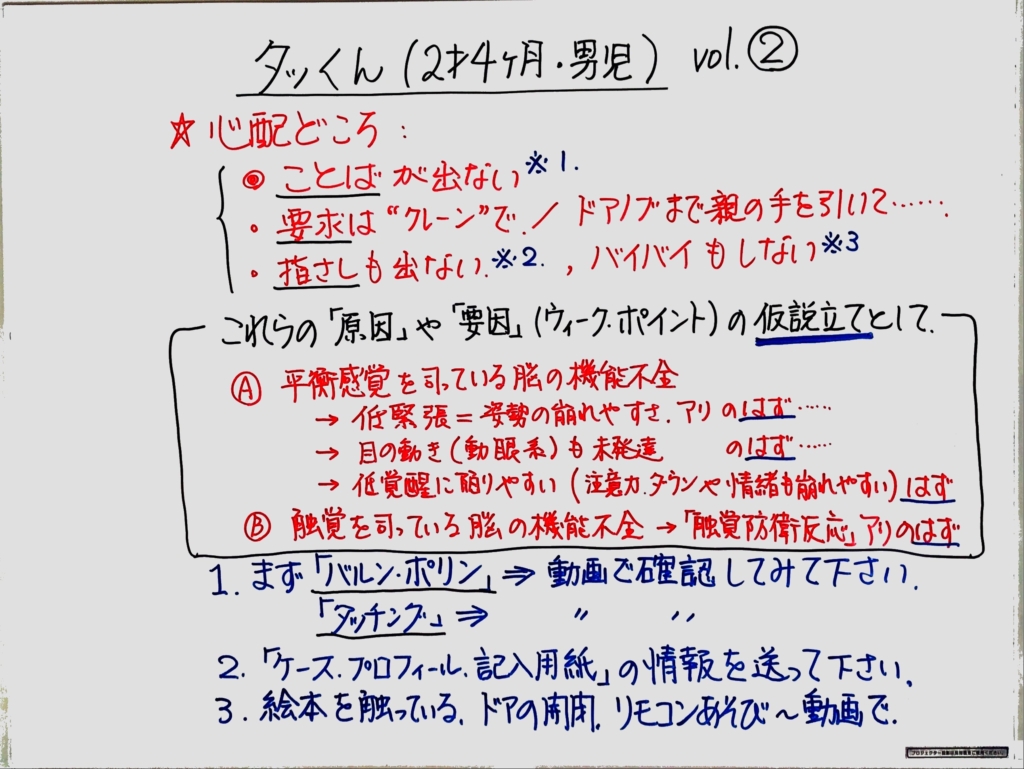 タッくん(2才4ヶ月・男児) vol.②
☆心配どころ:
◉ ことばが出ない※1.
・要求は"クレーン"で./ドアノブまで親の手を引いて……
・指さしも出ない.※2.,バイバイもしない※3
これらの「原因」や「要因」(ウィーク・ポイント)の仮説立てとして.
Ⓐ 平衡感覚を司っている脳の機能不全
→ 低緊張=姿勢の崩れやすさ.アリのはず……
→ 目の動き(動眼系)も未発達 のはず……
→ 低覚醒に陥りやすい(注意力.ダウンや情緒も崩れやすい)はず
Ⓑ 触覚を司っている脳の機能不全→「触覚防衛反応」アリのはず
1.まず「バルン・ポリン」⇒ 動画で確認してみて下さい.
「タッチング」⇒ 〃 〃
2.「ケース.プロフィール.記入用紙」の情報を送って下さい.
3.絵本を触っている.ドアの開閉.リモコンあそび〜動画で.